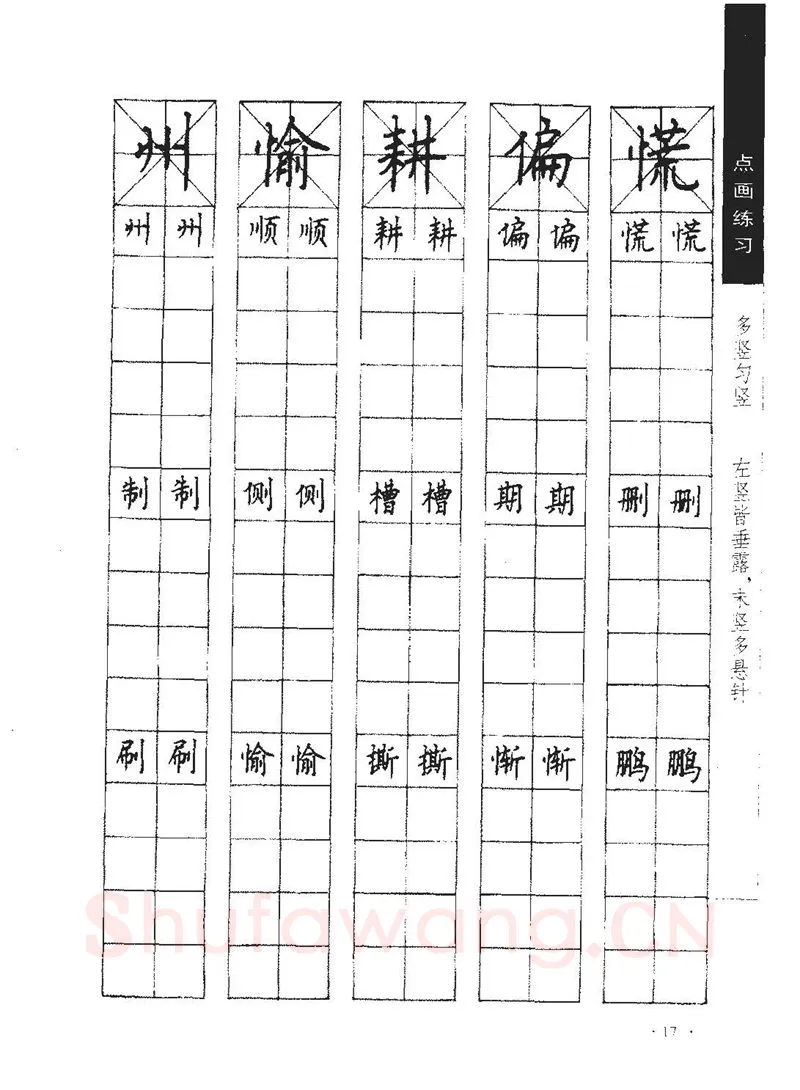 点画练习
多竖匀竖 左竖皆垂露，末竖多悬针
慌 偏 耕 愉 州
慌 慌 偏 偏 耕 耕 顺 顺 州 州
删 删 期 期 槽 槽 侧 侧 制 制
鹏 鹏 惭 惭 撕 撕 愉 愉 刷 刷
Shufawang.CN
·17·